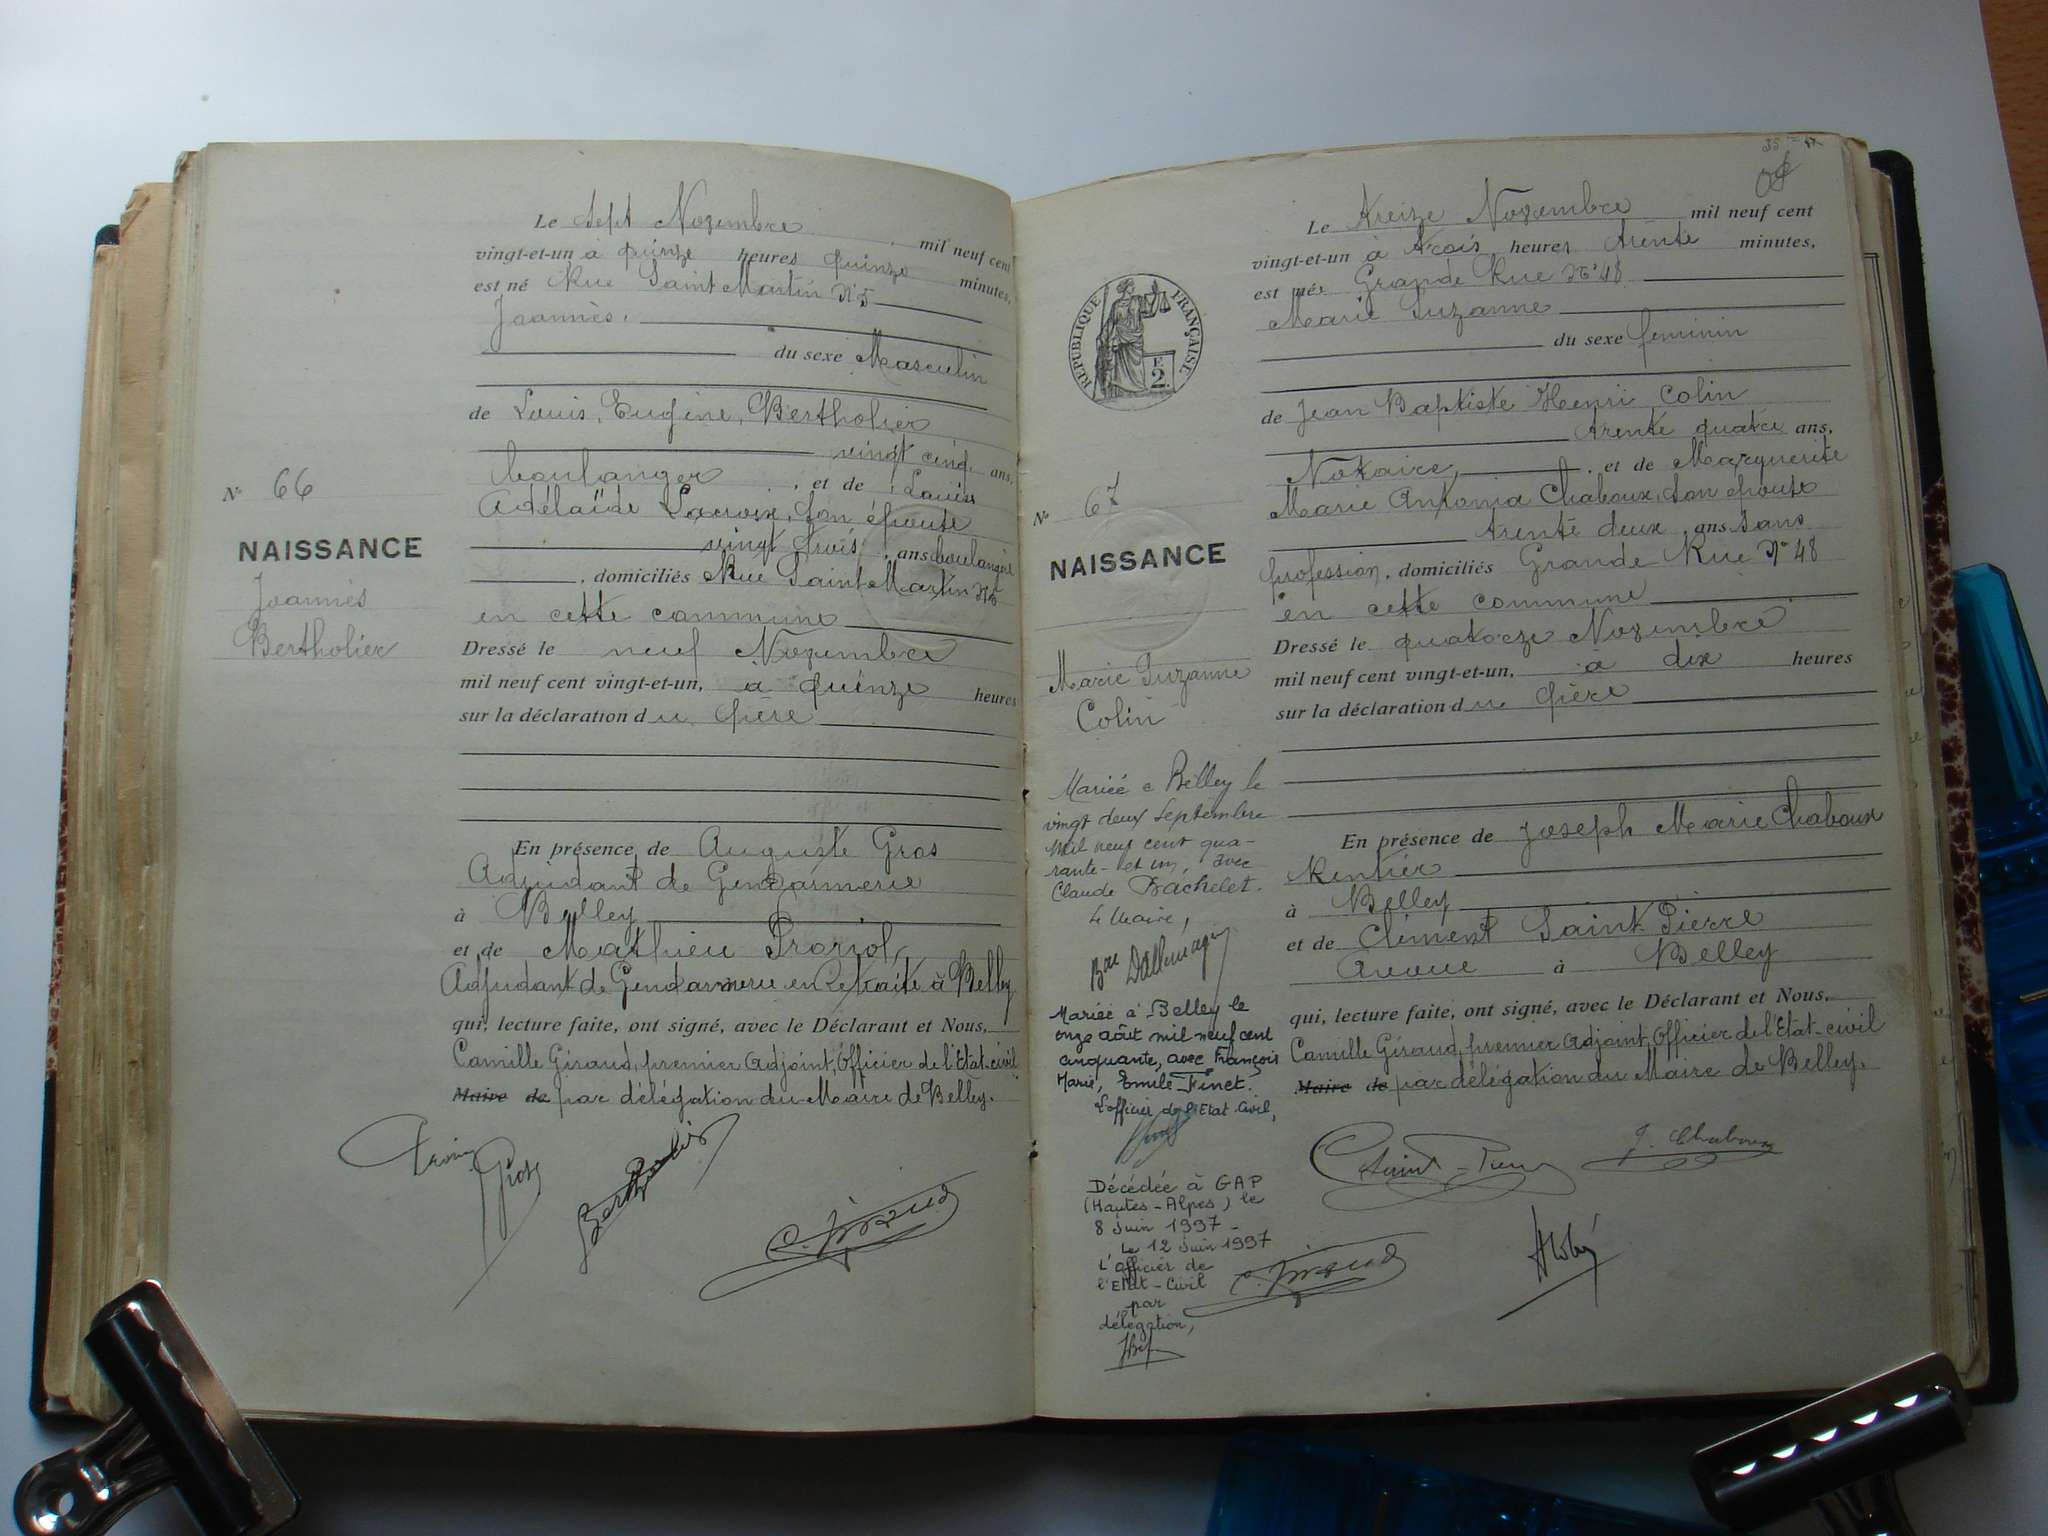 Le Sept Novembre mil neuf cent
vingt-et-un à quinze heures quinze minutes,
est né Rue Saint Martin N° 5
Joannès,
du sexe Masculin
de Louis, Eugène, Bertholier
vingt cinq ans,
boulanger, et de Louise
Adélaïde Lacroix, son épouse
vingt trois, ans boulangère
, domiciliés Rue Saint Martin N° 5
en cette commune
Dressé le neuf Novembre
mil neuf cent vingt-et-un, à quinze heures
sur la déclaration du père
En présence de Auguste Gros
Adjudant de Gendarmerie
à Belley
et de Mathieu
Adjudant de Gendarmerie en retraite à Belley
qui, lecture faite, ont signé, avec le Déclarant et Nous,
Camille Giraud, premier Adjoint, Officier de l'Etat-civil
Maire de par délégation du Maire de Belley.
N° 66
NAISSANCE
Joannès
Bertholier
Gros
Bertholier
C. Giraud
35
Le treize Novembre mil neuf cent
vingt-et-un à trois heures trente minutes,
est née Grande Rue N° 48
Marie Suzanne
du sexe féminin
de Jean Baptiste Henri Colin
trente quatre ans,
Notaire, et de Marguerite
Marie Antonia Chaboux, son épouse
trente deux, ans sans
profession, domiciliés Grande Rue N° 48
en cette commune
Dressé le quatorze Novembre
mil neuf cent vingt-et-un, à dix heures
sur la déclaration du père
En présence de Joseph Marie Chaboux
Rentier
à Belley
et de Clément Saint-Pierre
Avoué à Belley
qui, lecture faite, ont signé, avec le Déclarant et Nous,
Camille Giraud, premier Adjoint, Officier de l'Etat-civil
Maire de par délégation du Maire de Belley.
RÉPUBLIQUE FRANÇAISE
F
2
N° 67
NAISSANCE
Marie Suzanne
Colin
Mariée à Belley le
vingt deux Septembre
mil neuf cent qua-
rante-et un, avec
Claude Bachelet.
Le Maire,
Bon Dallemagne
Mariée à Belley le
onze Août mil neuf cent
cinquante, avec François
Marie, Emile Finet.
L'officier de l'Etat Civil,
Décédée à GAP
(Hautes-Alpes) le
8 Juin 1997-
Le 12 Juin 1997
L'officier de
l'Etat-Civil
par
délégation,
C Saint-Pierre
J. Chaboux
C. Giraud